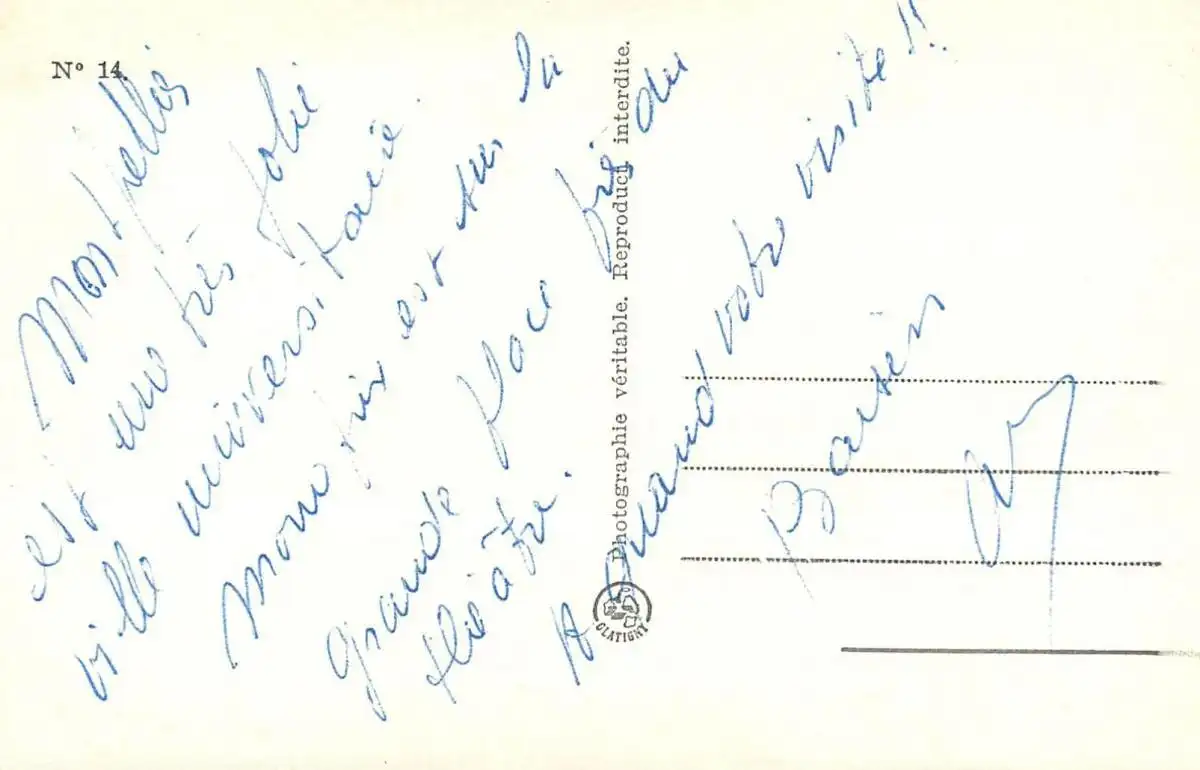 N° 14.
Montpellier
est une très jolie
ville universitaire.
Mon fils est sur la
grande place près du
théâtre.
A quand votre visite !!
Baisers
Photographie véritable. Reproduct. interdite.
OLATIGNY